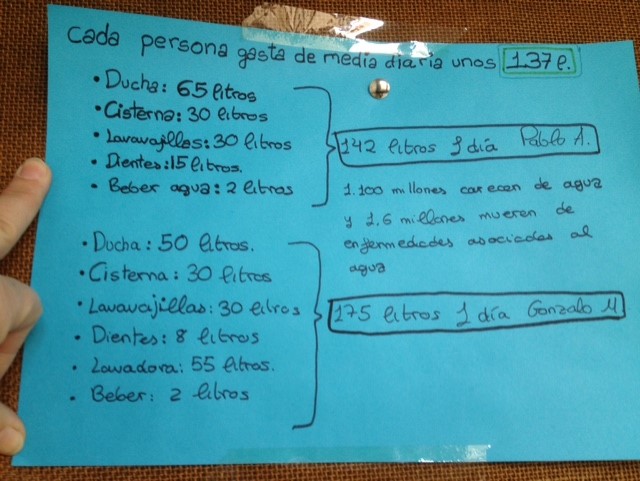 Cada persona gasta de media diaria unos 137 l.
• Ducha: 65 litros
• Cisterna: 30 litros
• Lavavajillas: 30 litros
• Dientes: 15 litros.
• Beber agua: 2 litros
142 litros 1 día Pablo A.
1.100 millones carecen de agua
y 1,6 millones mueren de
enfermedades asociadas al
agua
• Ducha: 50 litros.
• Cisterna: 30 litros
• Lavavajillas: 30 litros
• Dientes: 8 litros
• Lavadora: 55 litros.
• Beber: 2 litros
175 litros 1 día Gonzalo M